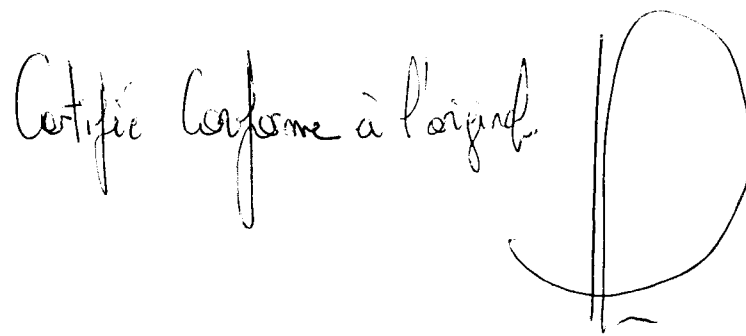 Certifié Conforme à l'original